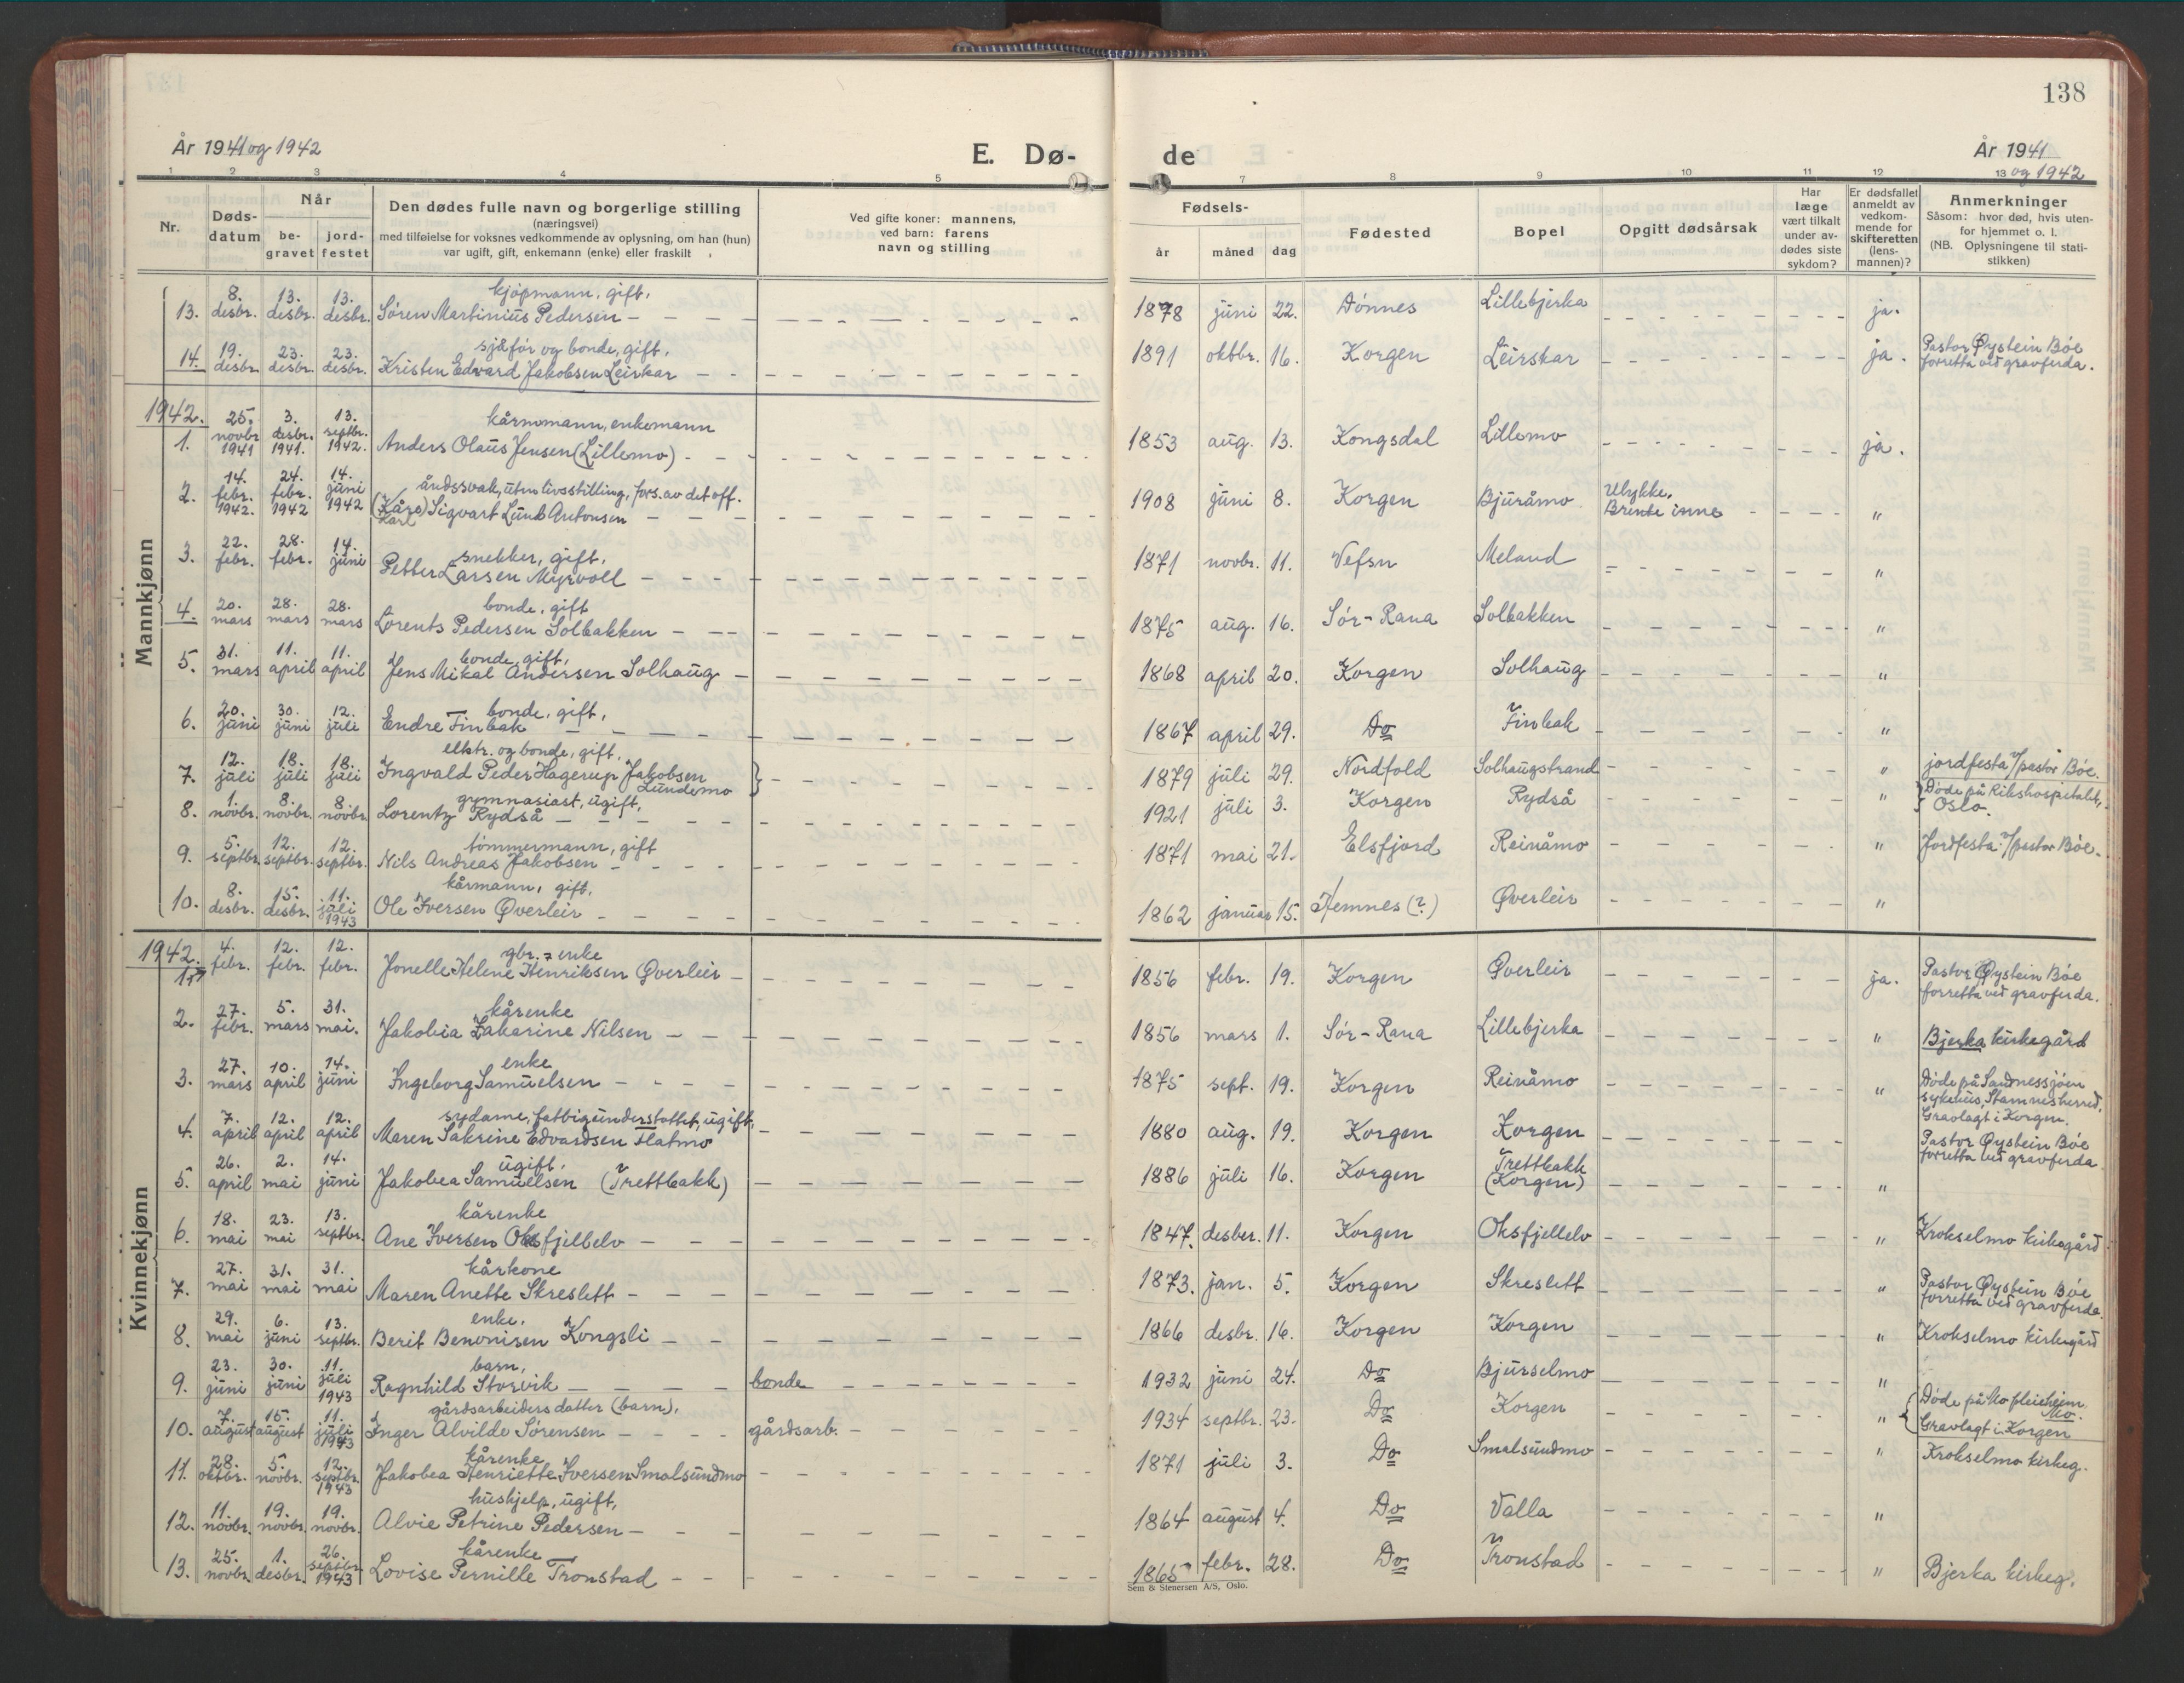 138
År 1941 og 1942
E. Dø-
de
År 1941
og 1942
1 2 3 4 5 7 8 9 10 11 12 13
Nr.
Døds-
datum
Når
be-
gravet
jord-
festet
Den dødes fulle navn og borgerlige stilling
(næringsvei)
med tilføielse for voksnes vedkommende av oplysning, om han (hun)
var ugift, gift, enkemann (enke) eller fraskilt
Ved gifte koner: mannens,
ved barn: farens
navn og stilling
Fødsels-
år måned dag
Fødested
Bopel
Opgitt dødsårsak
Har
læge
vært tilkalt
under av-
dødes siste
sykdom?
Er dødsfallet
anmeldt av
vedkom-
mende for
skifteretten
(lens-
mannen)?
Anmerkninger
Såsom: hvor død, hvis uten-
for hjemmet o. l.
(NB. Oplysningene til stati-
stikken)
Mannkjønn
8. 13. 13. kjøpmann, gift,
13. desbr. desbr. desbr. Søren Martinius Pedersen 1878 juni 22. Dønnes Lillebjerka ja.
19. 23. 23. sjåfør og bonde, gift, Pastor Øystein Bøe
14. desbr. desbr. desbr. Kristen Edvard Jakobsen Leirskar 1891 oktbr. 16. Korgen Leirskar ja. forretta ved gravferda.
1942. 25. 3. 13. kårmann, enkemann
1. novbr. 1941 desbr. 1941. septbr. 1942. Anders Olaus Jensen (Lillemo) 1853 aug. 13. Kongsdal Lillemo ja.
14. 24. 14. åndssvak, uten livsstilling, fors. av det off. Ulykke,
2. febr. 1942. febr. 1942 juni 1942 (Kåre) Sigvart Lund Antonsen 1908 juni 8. Korgen Bjuråmo Brente inne "
Karl
22. 28. 14. snekker, gift,
3. febr. febr. juni Petter Larsen Myrvoll 1871 novbr. 11. Vefsn Meland "
20. 28. 28. bonde, gift
4. mars mars mars Lorents Pedersen Solbakken 1875 aug. 16. Sør-Rana Solbakken "
31. 11. 11. bonde, gift,
5. mars april april Jens Mikal Andersen Solhaug 1868 april 20. Korgen Solhaug "
20. 30. 12. bonde, gift,
6. juni juni juli Endre Finbak 1867 april 29. Do Finbak "
12. 18. 18. elktr. og bonde, gift,
7. juli juli juli Ingvald Peder Hagerup Jakobsen 1879 juli 29. Nordfold Solhaugstrand " jordfesta v/pastor Bøe.
Lundemo
1. 8. 8. gymnasiast, ugift, Døde på Rikshospitalet,
8. novbr. novbr. novbr. Lorentz Rydså 1921 juli 3. Korgen Rydså " Oslo.
5. 12. 12. tømmermann, gift
9. septbr. septbr. septbr. Nils Andreas Jakobsen 1871 mai 21. Elsfjord Reinåmo " Jordfesta v/pastor Bøe.
8. 15. 11. kårmann, gift,
10. desbr. desbr. juli 1943 Ole Iversen Øverleir 1862 januar 15. Hemnes (?) Øverleir "
Kvinnekjønn
1942. 4. 12. 12. gbr.-enke Pastor Øystein Bøe
1. febr. febr. febr. Jonelle Helene Henriksen Øverleir 1856 febr. 19. Korgen Øverleir ja. forretta ved gravferda.
27. 5. 31. kårenke
2. febr. mars mai. Jakobia Zakarine Nilsen 1856 mars 1. Sør-Rana Lillebjerka " Bjerka kirkegård
27. 10. 14. enke Døde på Sandnessjøen
3. mars april juni Ingeborg Samuelsen 1875 sept. 19. Korgen Reinåmo " sykehus, Stamnes herred.
Gravlagt i Korgen.
7. 12. 12. sydame, fattigunderstøttet, ugift, Pastor Øystein Bøe
4. april april april Maren Sakrine Edvardsen Hatmo 1880 aug. 19. Korgen Korgen forretta ved gravferda.
26. 2. 14. ugift, Trettbakk
5. april mai juni Jakobea Samuelsen (Trettbakk) 1886 juli 16. Korgen (Korgen) "
18. 23. 13. kårenke
6. mai mai septbr. Ane Iversen Oksfjellelv 1847. desber. 11. Korgen Oksfjellelv " Krokselmo kirkegård
27. 31. 31. kårkone Pastor Øystein Bøe
7. mai mai mai Maren Anette Skreslett 1873. jan. 5. Korgen Skreslett " forretta ved gravferda.
29. 6. 13. enke.
8. mai juni septbr. Berit Benonisen Kongsli 1866 desbr. 16. Korgen Korgen " Krokselmo kirkegård
23. 30. 11. barn,
9. juni juni juli 1943 Ragnhild Storvik bonde 1932 juni 24. Do Bjurselmo "
7. 15. 11. gårdsarbeiders datter (barn), Døde på Mo pleieheim, Mo.
10. august august juli 1943 Inger Alvilde Sørensen gårdsarb. 1934 septbr. 23. Do Korgen " Gravlagt i Korgen
28. 5. 12. kårenke
11. oktbr. novbr. septbr. 1943 Jakobea Henriette Iversen Smalsundmo 1871 juli 3. Do Smalsundmo " Krokselmo kirkeg.
11. 19. 19. hushjelp, ugift,
12. novbr. novbr. novbr. Alvie Petrine Pedersen 1864 august 4. Do Valla "
25. 1. 26. kårenke
13. novbr. desbr. septbr. 1943 Lovise Pernille Tronstad 1865 febr. 28. Do Tronstad " Bjerka kirkeg.
Sem & Stenersen A/S, Oslo.